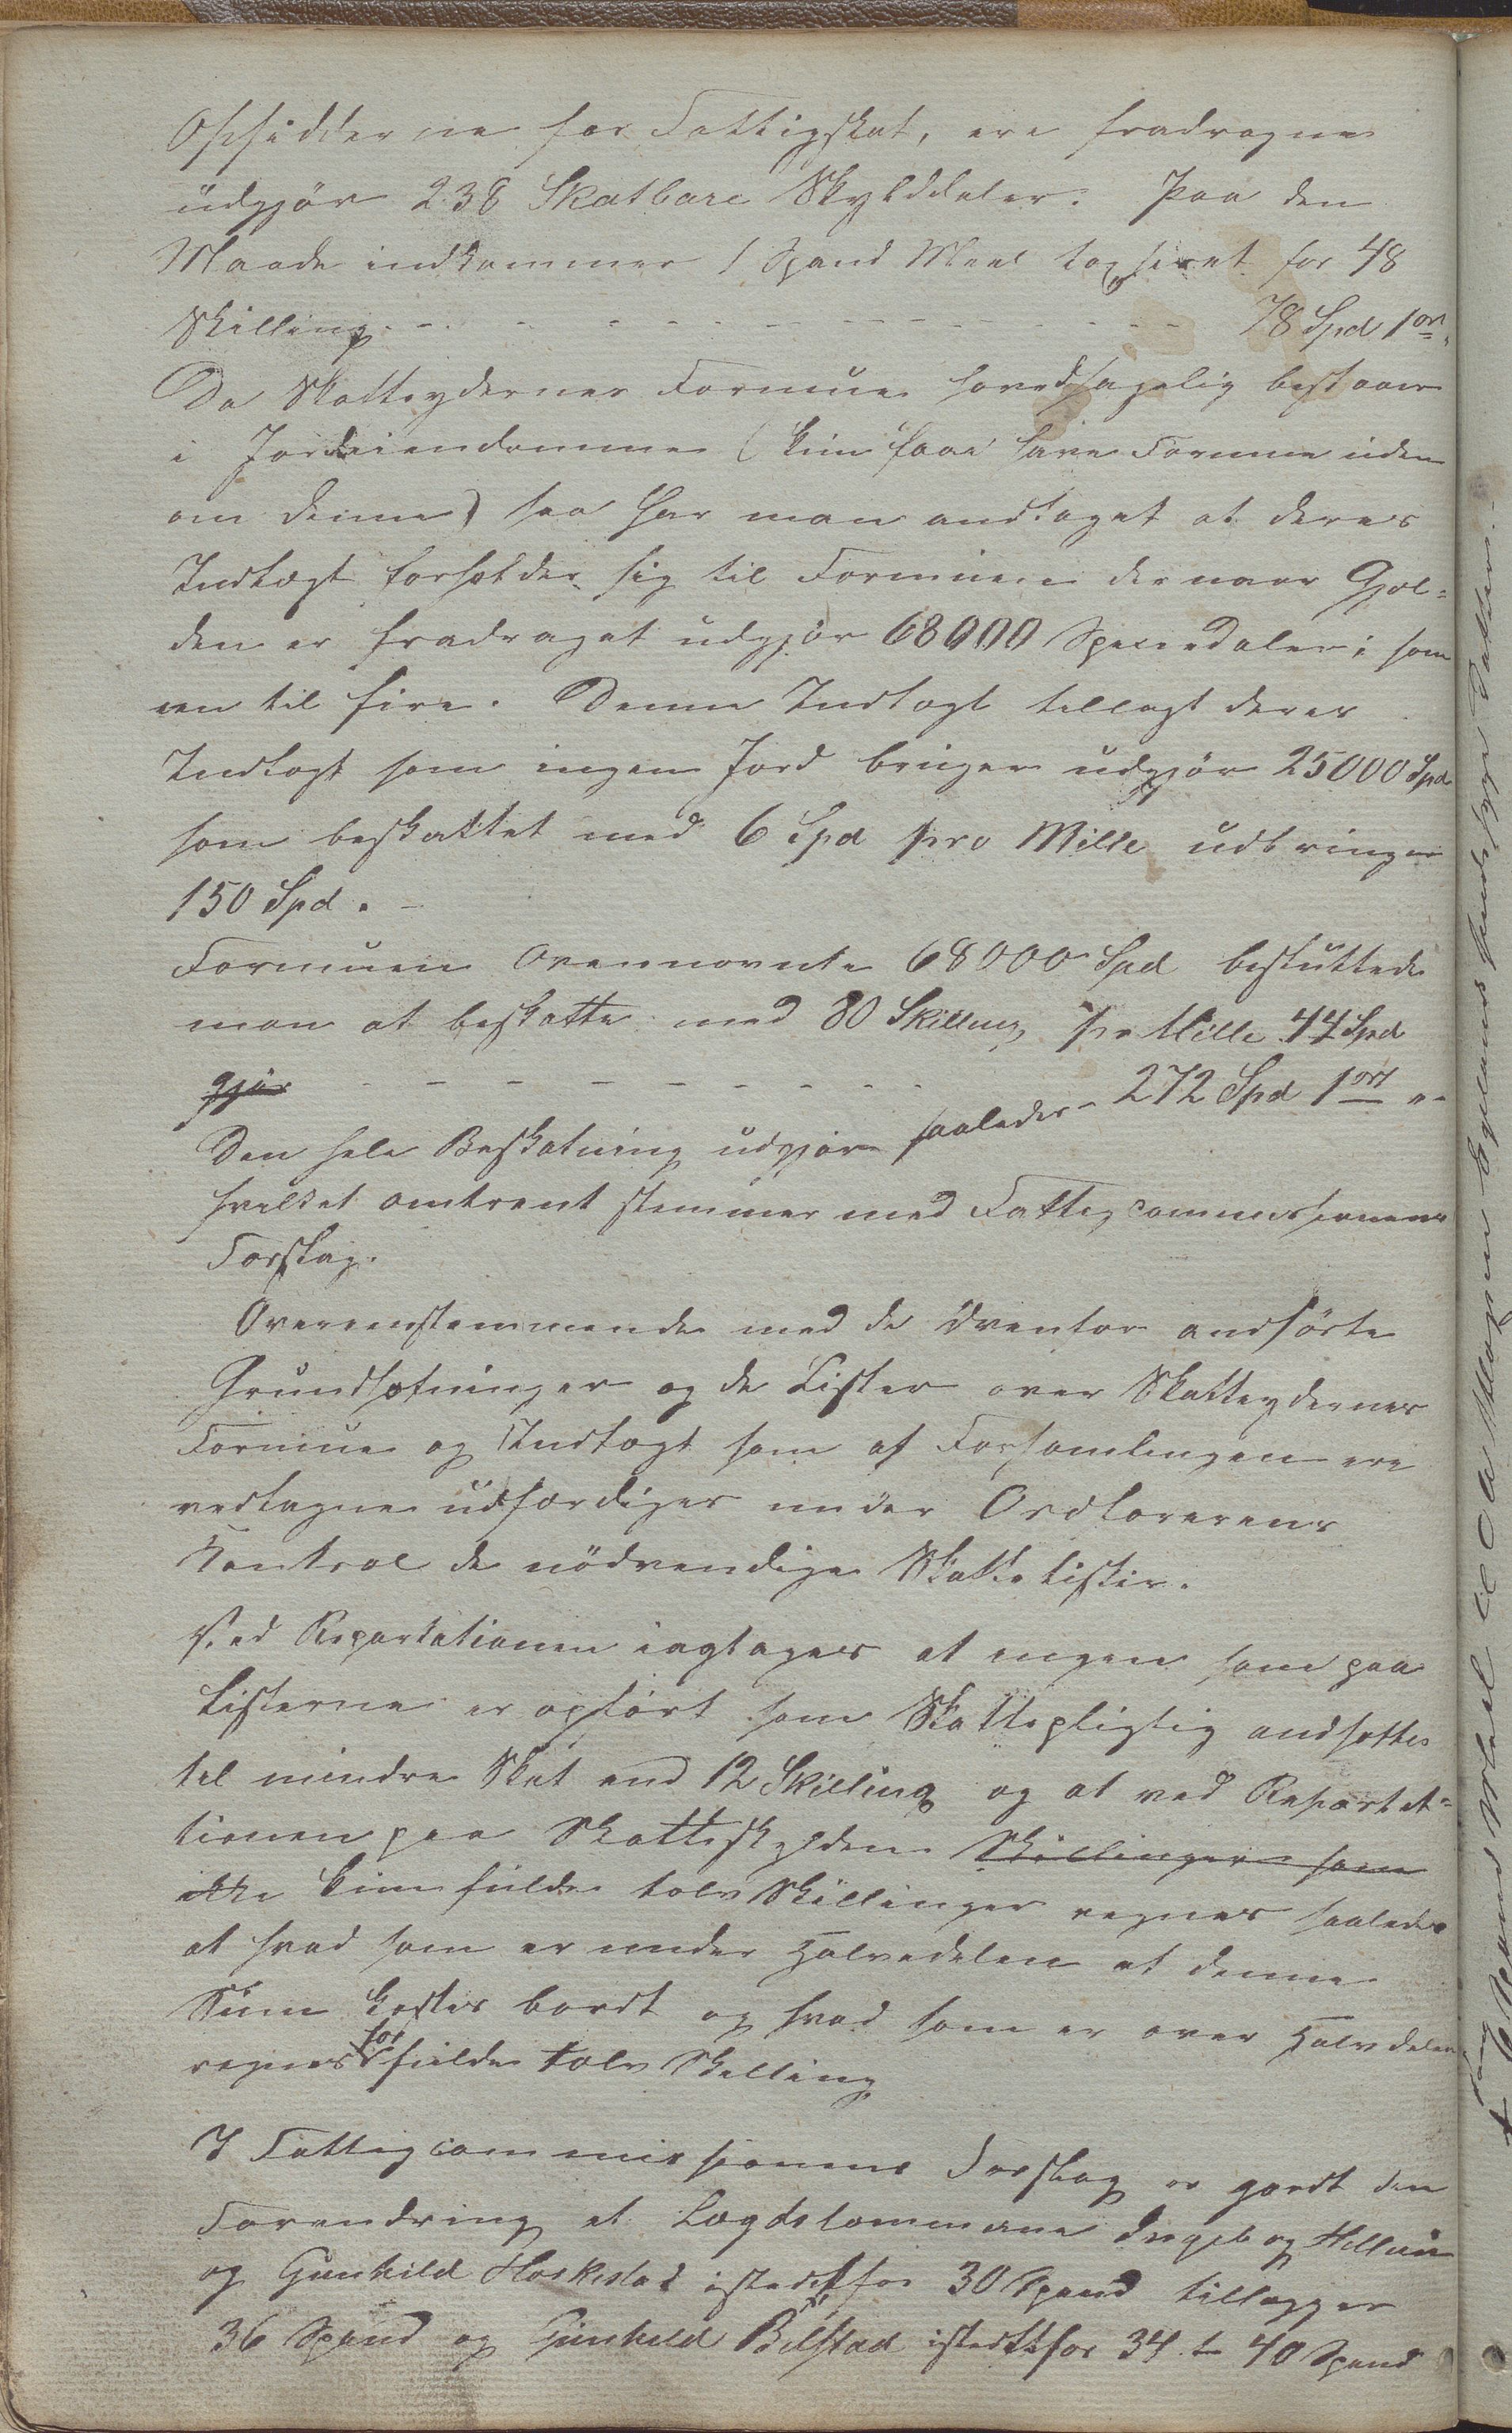 Opsidderne for Fattigskat, ere fradragne
udgjör 238 Skatbare Skylddaler. Paa den
Maade indkommer 1 Spand Meel taxseret for 48
Skilling - - - - - - - - - - - - 78 Spd 1 ort
Da Skatteydernes Formue hovedsagelig bestaaer
i Jordeiendomme (kun faae have Formue uden
om denne) saa har man andtaget at deres
Indtægt forholder sig til Formuen der naar Gjel=
den er fradraget udgjör 68000 Speciedaler; som
een til fire. Denne Indtægt tillagt deres
Indtægt som ingen Jord bruger udgjör 25000 Spd
som beskattet med 6 Spd pro Mille udbringer
150 Spd. -
Formuen Ovennævnte 68000 Spd besluttede
man at beskatte med 80 Skilling pr Mille 44 Spd
gjör - - - - - - - - -
Den hele Beskatning udgjör saaledes 272 Spd 1 ort "
hvilket omtrent stemmer med Fattigcommissionens
Forslag.
Overeenstemmende med de ovenfor andförte
Grundsætninger og de Lister over Skatteydernes
Formue og Indtægt som af Forsamlingen ere
vedtagne udfærdiges under Ordförerens
Kontrol de nödvendige Skattelister.
Ved Repartitionen iagtages at ingen som paa
Listerne er opfört som Skattepligtig andsættes
til mindre Skat end 12 Skilling og at ved Repartet=
tionen paa Skatteskylden Skillinger som
ikke kun fulde tolv Skillinger regnes saaledes
at hvad som er under Halvedelen af denne
Sum kastes bordt og hvad som er over Halvdelen
regnes for fulde tolv Skilling
I Fattigcommissionens Forslag er gjordt den
Forandring at Lægdslemmerne Ingeb og
og Gunhild Haskestad istedetfor 30 Spand tillægges
36 Spand og Gunhild Bilstad istedetfor 34 to 40 Spand